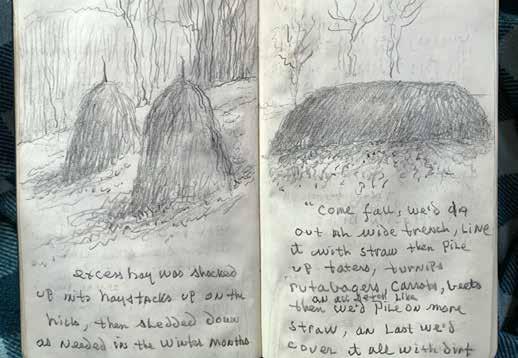 excess hay was shocked
up into haystacks up on the
hills, then sledded down
as needed in the winter months
"Come fall, we'd dig
out uh wide trench, line
it with straw then pile
up taters, turnips
rutabagers, carrots, beets
an all sech like
then we'd pile on more
straw, an last we'd
cover it all with dirt